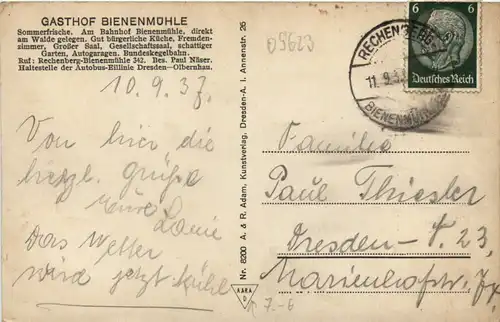 GASTHOF BIENENMÜHLE
Sommerfrische. Am Bahnhof Bienenmühle, direkt
am Walde gelegen. Gut bürgerliche Küche, Fremden-
zimmer, Großer Saal, Gesellschaftssaal, schattiger
Garten, Autogaragen. Bundeskegelbahn.
Ruf: Rechenberg-Bienenmühle 342. Bes. Paul Näser.
Haltestelle der Autobus-Eillinie Dresden—Olbernhau.
10.9.37.
Von hier die
herzl. Grüße
Eure
Das Wetter
wird jetzt kühl
Nr. 8200 A. & R. Adam, Kunstverlag, Dresden-A. I. Annenstr. 25
ARA
D
09623
RECHENBERG
11.9.3
BIENENMÜHLE
6 6
Deutsches Reich
Familie
Paul Thiesler
Dresden-A. 23,
Marienhofstr. 7x
7.-6